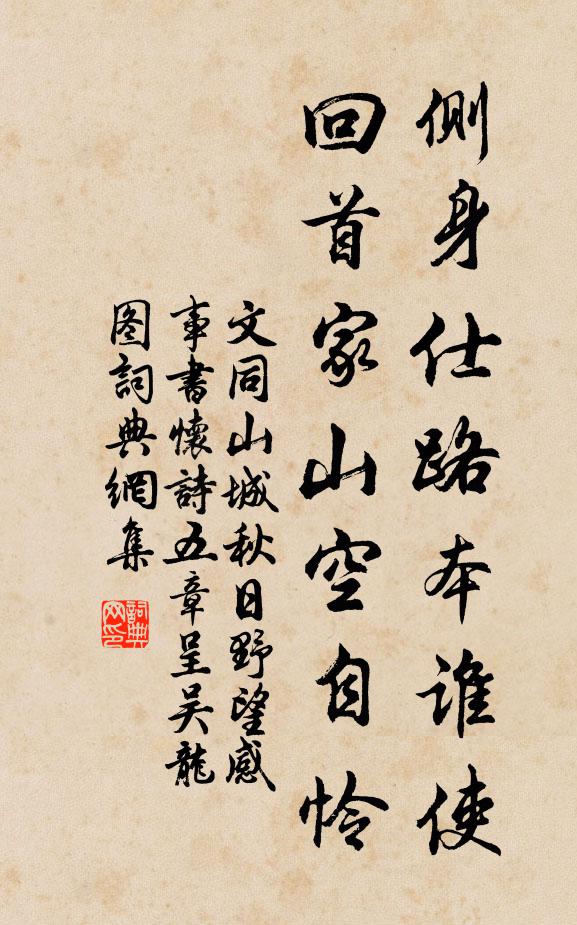 側身仕路本誰使
回首家山空自怜
文同山城秋日野望感
事書懷詩五章呈吴龍
图詞典網集
詞典
网印